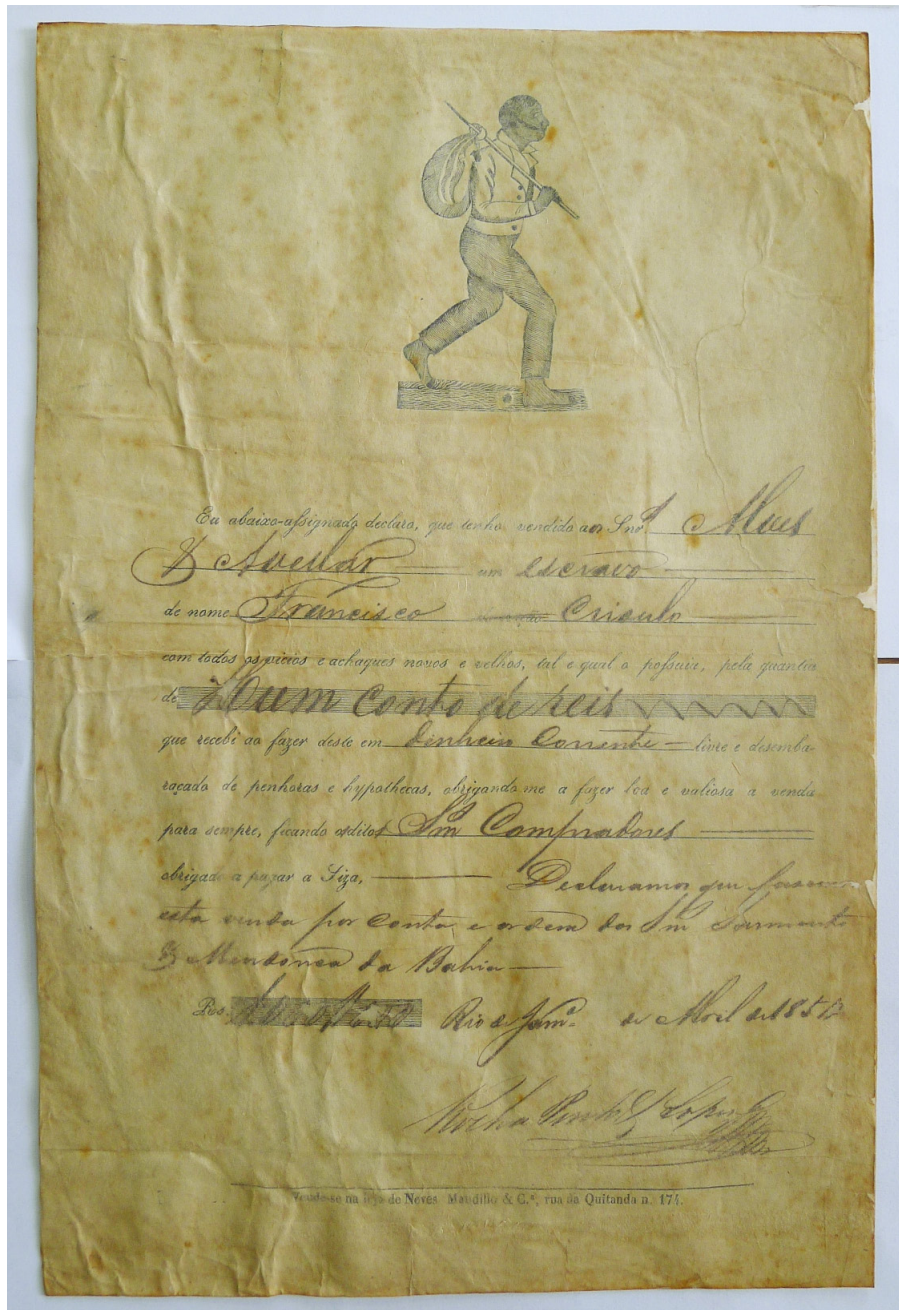 Eu abaixo-assignado declaro, que tenho vendido aos Snrs Alves
& Avellar um escravo
de nome Francisco de nação Crioulo
com todos os vicios e achaques novos e velhos, tal e qual o possuia, pela quantia
de Hum Conto de reis
que recebi ao fazer deste em dinheiro Corrente livre e desemba-
raçado de penhoras e hypothecas, obrigando-me a fazer boa e valiosa a venda
para sempre, ficando os ditos Snrs Compradores
obrigado a pagar a Siza, Declaramos que fasemos
esta venda por conta e ordem dos Snrs Sarmento
& Mendonça da Bahia
Rs. Rio de Janro. de Abril de 185
Rocha Pinto & Lopes
Vende-se na loja de Neves Maudillo & C.ª, rua da Quitanda n. 174.